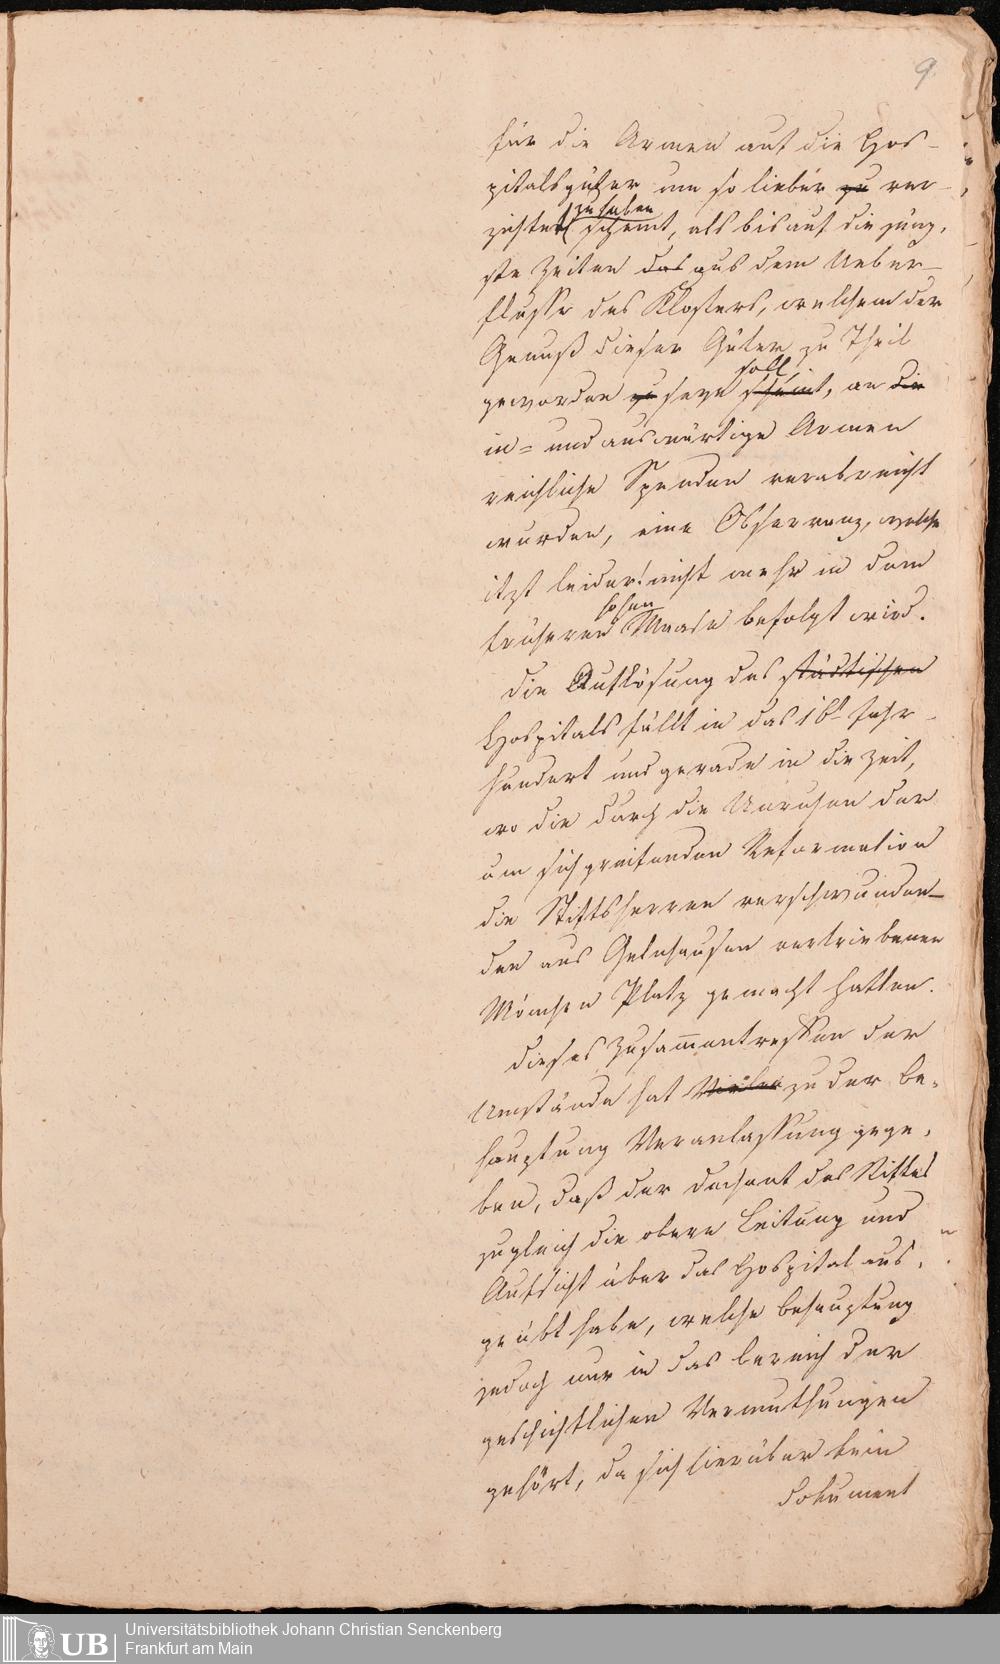 9
für die Armen auf die Hos-
pitalsgüter um so lieber zu ver-
zichtet zu haben scheint, als bis auf die jüng-
ste Zeiten das aus dem Ueber-
flusse des Klosters, welchem der
Genuß dieser Güter zu Theil
geworden zu seyn scheint soll, an die
in- und auswärtige Armen
reichliche Spenden verabreicht
wurden, eine Observanz, welche
itzt leider! nicht mehr in dem
früheren hohen Maase befolgt wird.
Die Auflösung des städtischen
Hospitals fällt in das 16t Jahr-
hundert und gerade in die Zeit,
wo die durch die Unruhen der
um sich greifenden Reformation
die Stiftsherren verschwunden
den aus Gelnhausen vertriebenen
Mönchen Platz gemacht hatten.
Dieses Zusam̅entreffen der
Umstände hat Vielen zu der Be-
hauptung Veranlassung gege-
ben, daß der Dechant des Stiftes
zugleich die obere Leitung und
Aufsicht über das Hospital aus-
geübt habe, welche Behauptung
jedoch nur in das Bereich der
geschichtlichen Vermuthungen
gehört, da sich hierüber kein
Dokument
UB
Universitätsbibliothek Johann Christian Senckenberg
Frankfurt am Main